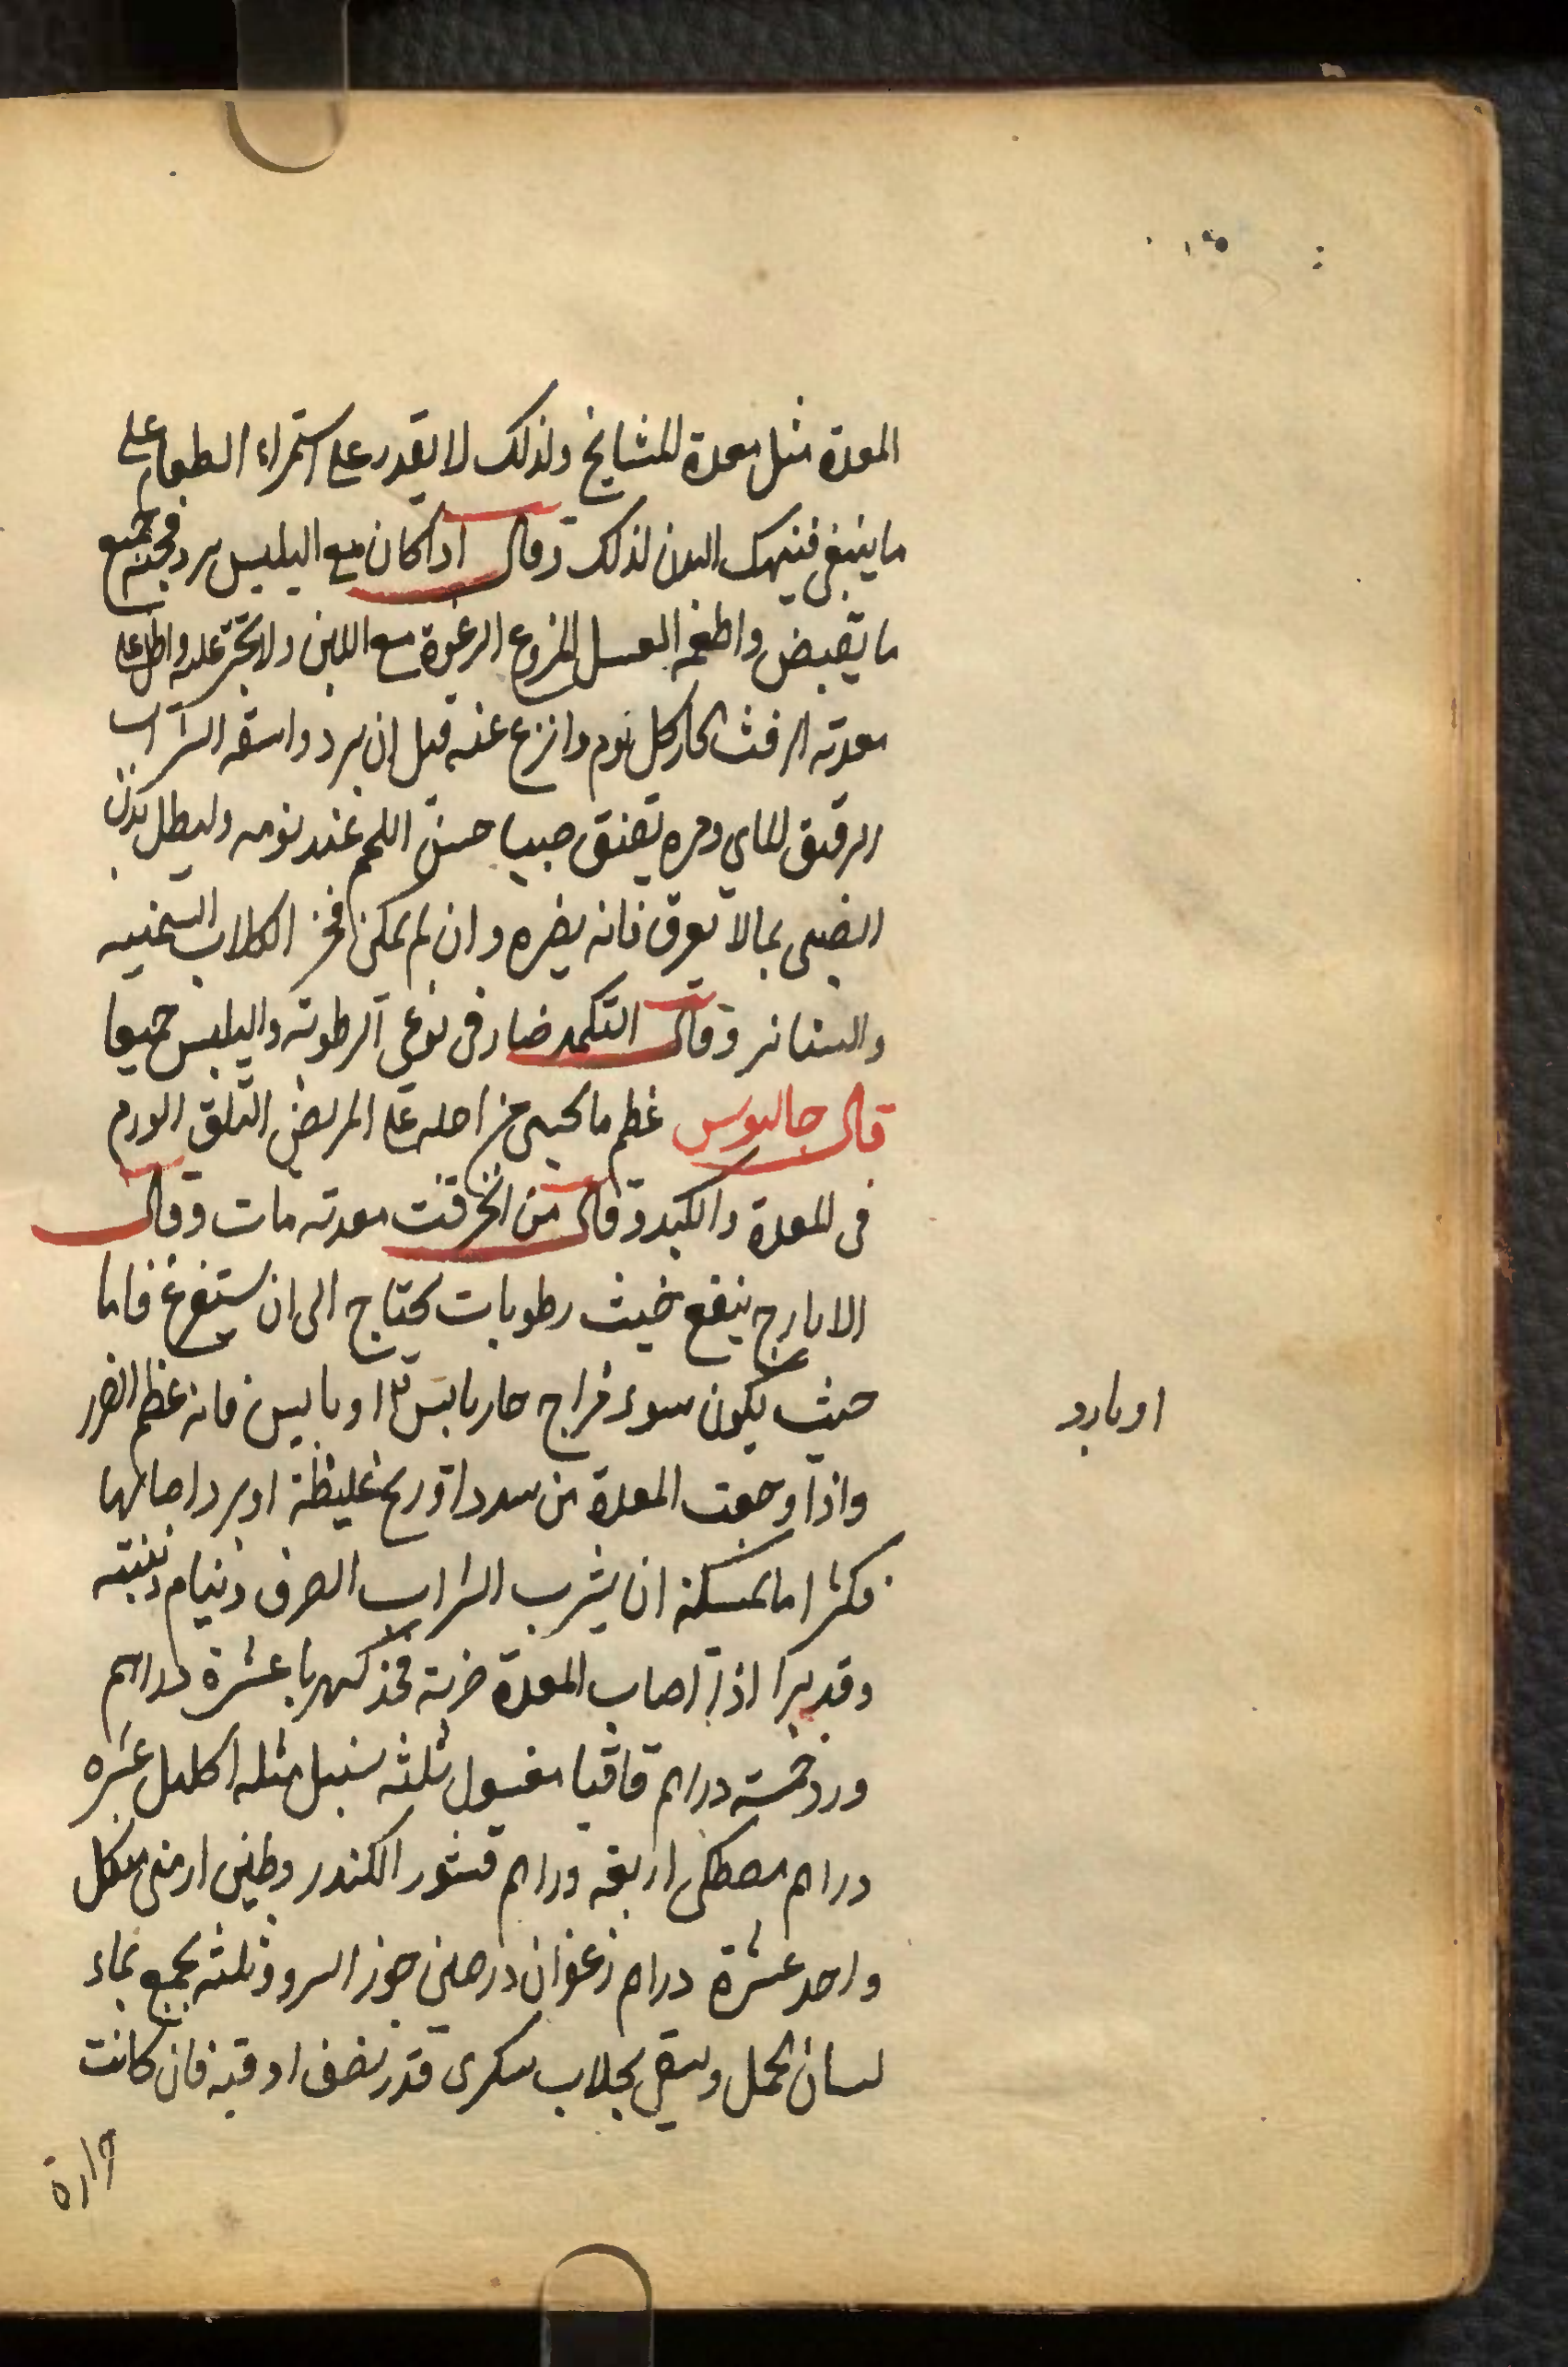 المعدة مثل معدة المشايخ ولذلك لا يقدر على استمراء الطعام على
ما ينبغى فينهك البدن لذلك وقال اذا كان مع اليبس برد فجنبه جميع
ما يقبض واطعمه العسل المنزوع الرغوة مع اللبن ولا تجتر عليه واطل على
معدته الزفت الحار كل يوم وانزع عنه قبل ان يبرد واسقه الشراب
الرقيق المائي ومره يعتنق صبيا حسن اللحم عند نومه وليطل بدن
الصبى بما لا يعرق فانه يضره وان لم يمكن فخذ الكلاب السمينه
والسنانير وقال التكمد ضار فى نوعى الرطوبة واليبس جميعا
قال جالينوس عظم ما يحمى من اجله على المريض التلف الورم
فى المعدة والكبد وقال من انخرقت معدته مات وقال
الايارج ينفع حيث رطوبات يحتاج الى ان يستفرغ فاما
حيث يكون سوء مزاج حار يابس او يابس فانه عظيم الضرر
او بارد
واذا وجعت المعدة من سدد او ريح غليظة او برد اصابها
فكثيرا ما يمسكنه ان يشرب الشراب الصرف وينام وينتبه
وقد برا اذا اصاب المعدة ضربة فخذ كهربا عشرة دراهم
ورد خمسة دراهم قاقيا مغسول ثلثه سنبل مثله اكليل عشره
دراهم مصطكى اربعه دراهم قشور الكندر وطين ارمنى من كل
واحد عشرة دراهم زعفران درهمين جوز السرو ثلثه يجمع بماء
لسان الحمل ويسقى بجلاب سكرى قدر نصف اوقيه فان كانت
حرارة